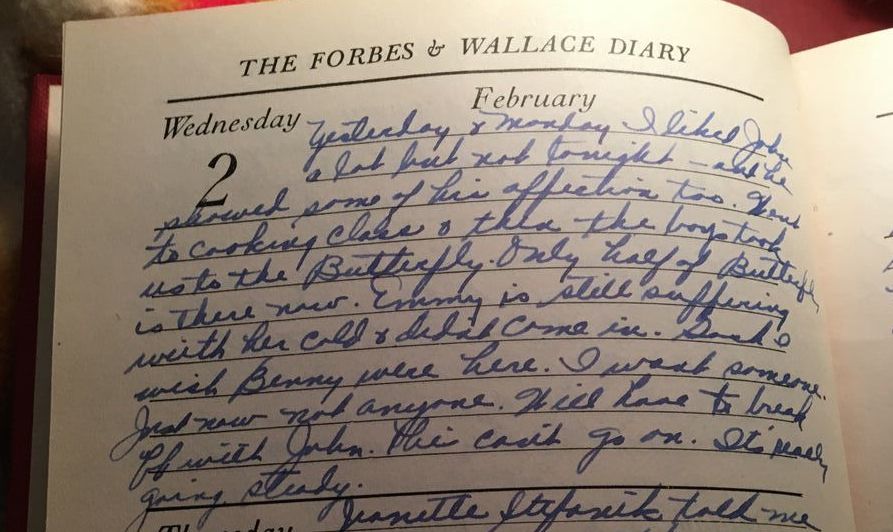 THE FORBES & WALLACE DIARY
February
Wednesday
2
Yesterday & Monday I liked John
a lot but not tonight – and he
showed some of his affection too. Went
to cooking class & then the boys took
us to the Butterfly. Only half of Butterfly
is there now. Emmy is still suffering
with her cold & didn't come in. Gosh I
wish Benny were here. I want someone.
Just now not anyone. Will have to break
off with John. This can't go on. It's really
going steady.
Thursday
Jeanette Stefanik told me